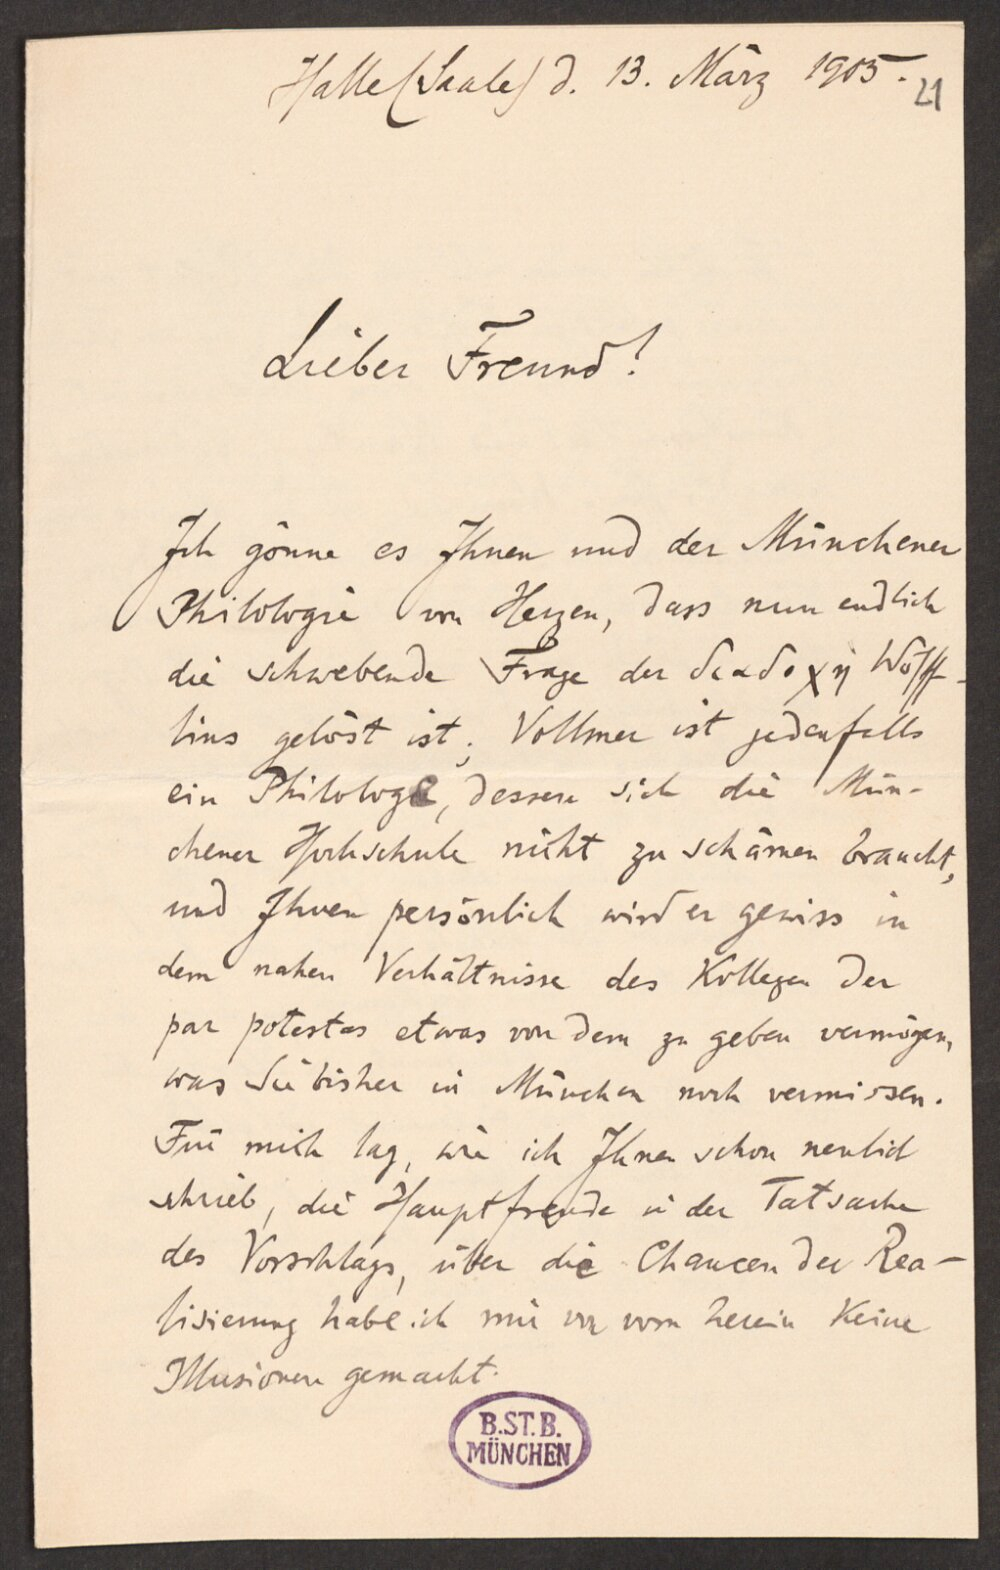 Halle (Saale) d. 13. März 1905.
21
Lieber Freund!
Ich gönne es Ihnen und der Münchener
Philologie von Herzen, dass nun endlich
die schwebende Frage der διαδοχή Wölff-
lins gelöst ist; Vollmer ist jedenfalls
ein Philologe, dessen sich die Mün-
chener Hochschule nicht zu schämen braucht,
und Ihnen persönlich wird er gewiss in
dem nahen Verhältnisse des Kollegen der
par potestas etwas von dem zu geben vermögen,
was Sie bisher in München noch vermissen.
Für mich lag, wie ich Ihnen schon neulich
schrieb, die Hauptfreude in der Tatsache
des Vorschlags, über die Chancen der Rea-
lisierung habe ich mir von vorn herein keine
Illusionen gemacht.
B.ST.B.
MÜNCHEN